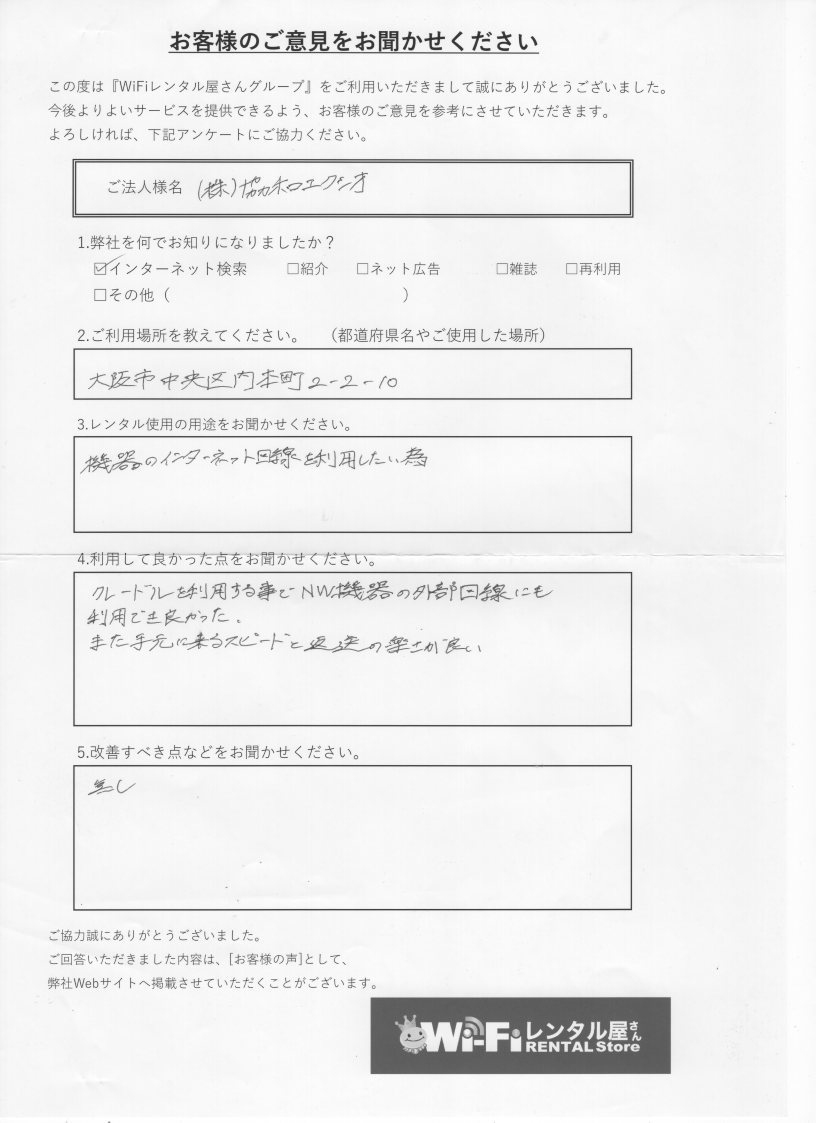 お客様のご意見をお聞かせください
この度は『WiFiレンタル屋さんグループ』をご利用いただきまして誠にありがとうございました。
今後よりよいサービスを提供できるよう、お客様のご意見を参考にさせていただきます。
よろしければ、下記アンケートにご協力ください。
ご法人様名 (株)協和エクシオ
1.弊社を何でお知りになりましたか？
☑インターネット検索 □紹介 □ネット広告 □雑誌 □再利用
□その他（ ）
2.ご利用場所を教えてください。 （都道府県名やご使用した場所）
大阪市中央区内本町2-2-10
3.レンタル使用の用途をお聞かせください。
機器のインターネット回線を利用したい為
4.利用して良かった点をお聞かせください。
クレードルを利用する事でNW機器の外部回線にも
利用でき良かった。
また手元に来るスピードと返送の楽さが良い
5.改善すべき点などをお聞かせください。
無し
ご協力誠にありがとうございました。
ご回答いただきました内容は、[お客様の声]として、
弊社Webサイトへ掲載させていただくことがございます。
Wi-Fiレンタル屋さん
RENTAL Store